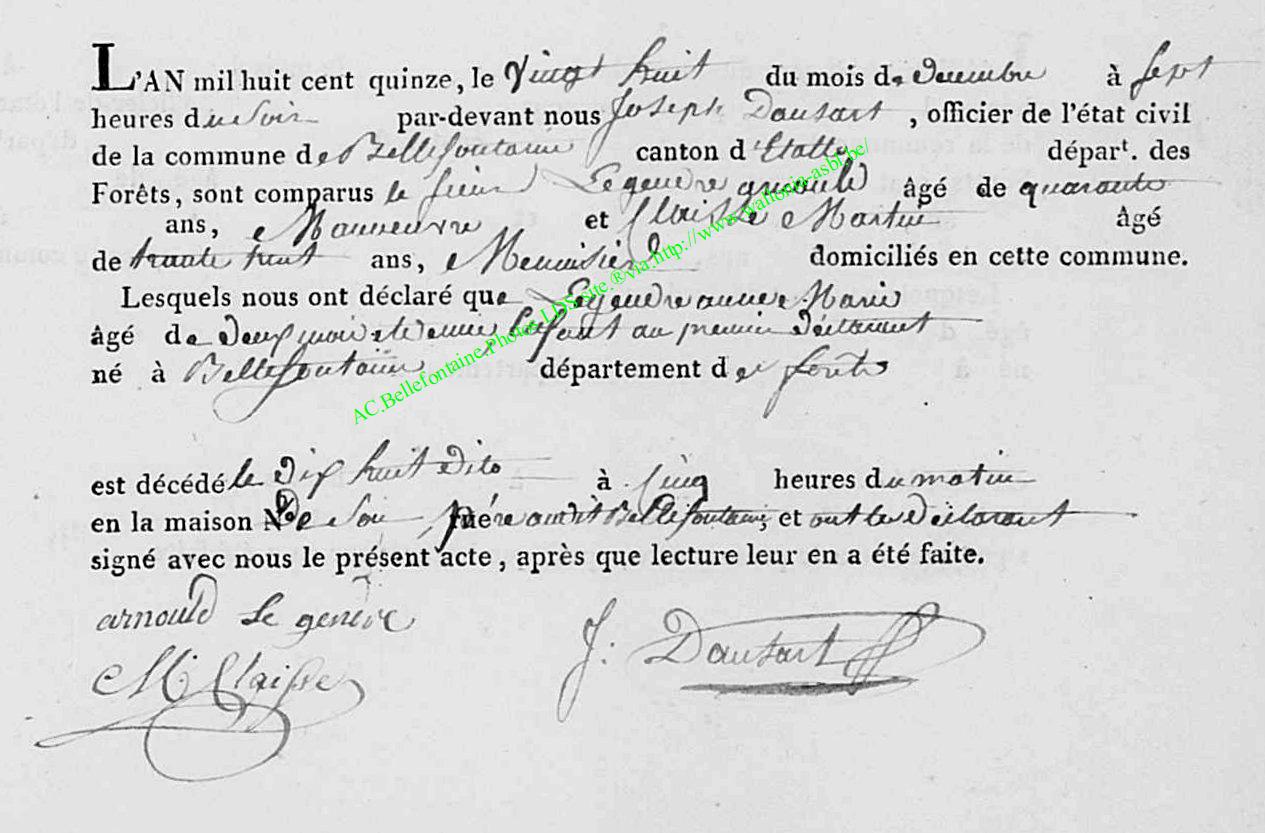 L'AN mil huit cent quinze, le Vingt huit du mois de decembre à sept
heures du soir par-devant nous Joseph Dausart, officier de l'état civil
de la commune de Bellefontaine canton d'Etalle départ. des
Forêts, sont comparus le sieur Legendre arnould âgé de quarante
ans, Manoeuvre et Claisse Martin âgé
de trente huit ans, Menuisier domiciliés en cette commune.
Lesquels nous ont déclaré que Legendre anne Marie
âgé de deux mois et demie, Enfant au premier déclarant
né à Bellefontaine département des forêts
est décédé le Dix huit dito à Cinq heures du matin
en la maison de Son père audit Bellefontaine, et ont les déclarant
signé avec nous le présent acte, après que lecture leur en a été faite.
arnould Le gendre
J: Dausart
M Claisse
AC.Bellefontaine.Photos.LDS.site.®via.http://www.wallonia-asbl.be/